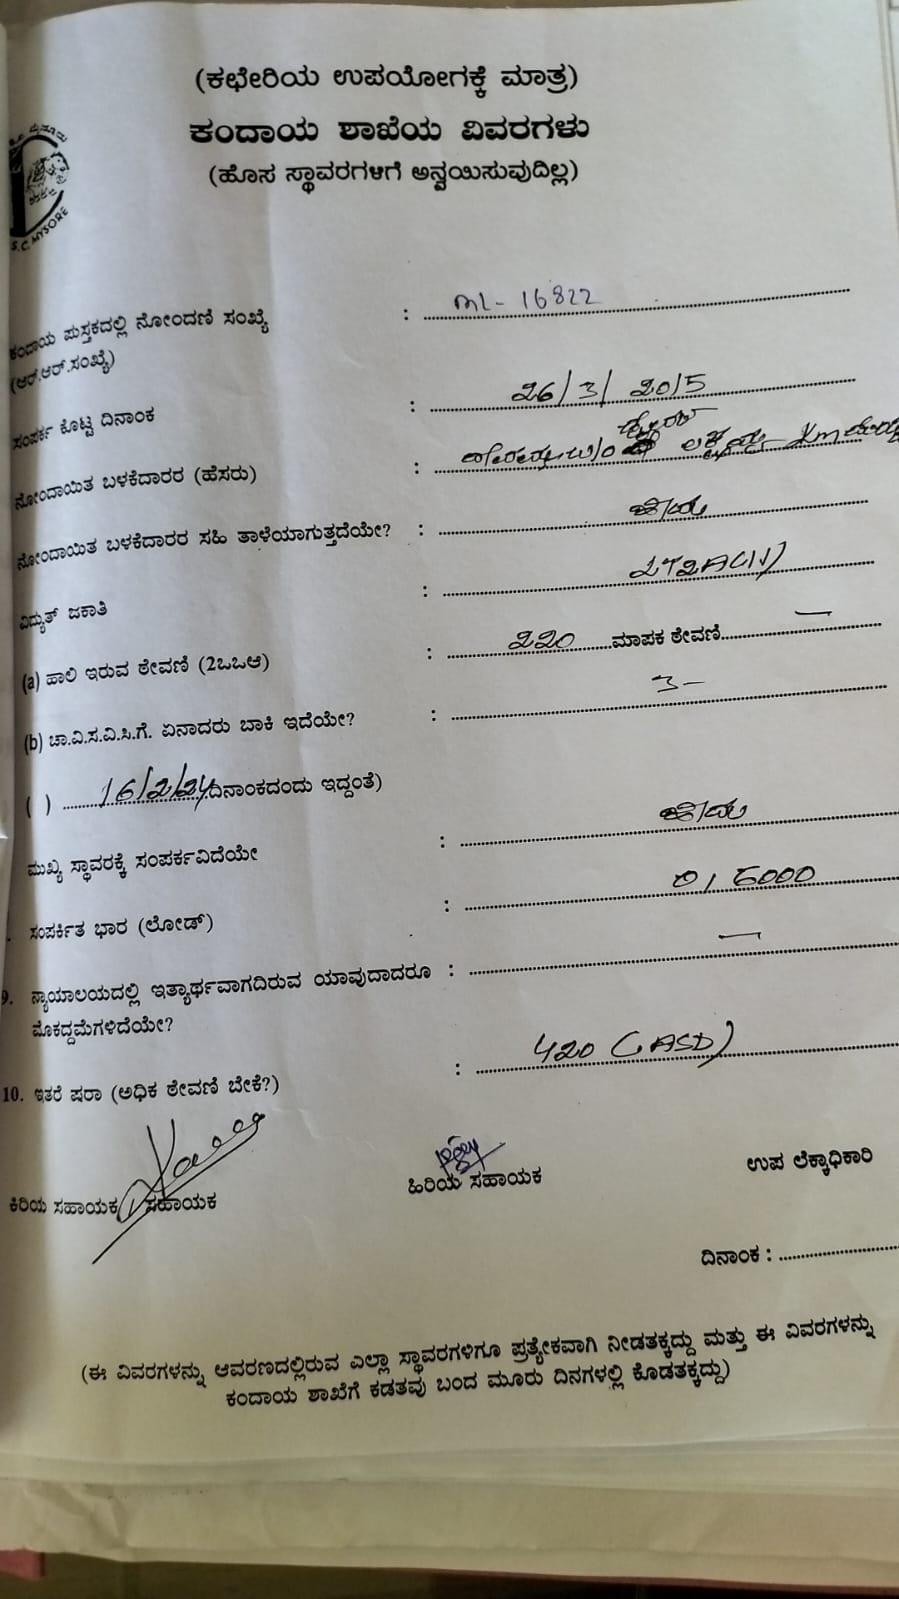 (ಕಛೇರಿಯ ಉಪಯೋಗಕ್ಕೆ ಮಾತ್ರ)
ಕಂದಾಯ ಶಾಖೆಯ ವಿವರಗಳು
(ಹೊಸ ಸ್ಥಾವರಗಳಿಗೆ ಅನ್ವಯಿಸುವುದಿಲ್ಲ)
S.C. MYSORE
ಕಂದಾಯ ಪುಸ್ತಕದಲ್ಲಿ ನೋಂದಣಿ ಸಂಖ್ಯೆ : ML- 16822
(ಆರ್.ಆರ್.ಸಂಖ್ಯೆ)
ಸಂಪರ್ಕ ಕೊಟ್ಟ ದಿನಾಂಕ : 26/3/2015
ನೋಂದಾಯಿತ ಬಳಕೆದಾರರ (ಹೆಸರು) :
ನೋಂದಾಯಿತ ಬಳಕೆದಾರರ ಸಹಿ ತಾಳೆಯಾಗುತ್ತದೆಯೇ? : ಹೌದು
ವಿದ್ಯುತ್ ಜಕಾತಿ : LT2A(IV)
(a) ಹಾಲಿ ಇರುವ ಠೇವಣಿ (2ಒಒಆ) : 220 ಮಾಪಕ ಠೇವಣಿ —
(b) ಚಾ.ವಿ.ಸ.ವಿ.ಸಿ.ಗೆ. ಏನಾದರು ಬಾಕಿ ಇದೆಯೇ? : 3-
( ) 16/2/24 ದಿನಾಂಕದಂದು ಇದ್ದಂತೆ)
ಮುಖ್ಯ ಸ್ಥಾವರಕ್ಕೆ ಸಂಪರ್ಕವಿದೆಯೇ : ಹೌದು
ಸಂಪರ್ಕಿತ ಭಾರ (ಲೋಡ್) :
9. ನ್ಯಾಯಾಲಯದಲ್ಲಿ ಇತ್ಯಾರ್ಥವಾಗದಿರುವ ಯಾವುದಾದರೂ : —
ಮೊಕದ್ದಮೆಗಳಿದೆಯೇ?
10. ಇತರೆ ಷರಾ (ಅಧಿಕ ಠೇವಣಿ ಬೇಕೆ?) : 420 (ASD)
ಕಿರಿಯ ಸಹಾಯಕ / ಸಹಾಯಕ ಹಿರಿಯ ಸಹಾಯಕ ಉಪ ಲೆಕ್ಕಾಧಿಕಾರಿ
ದಿನಾಂಕ :
(ಈ ವಿವರಗಳನ್ನು ಆವರಣದಲ್ಲಿರುವ ಎಲ್ಲಾ ಸ್ಥಾವರಗಳಿಗೂ ಪ್ರತ್ಯೇಕವಾಗಿ ನೀಡತಕ್ಕದ್ದು ಮತ್ತು ಈ ವಿವರಗಳನ್ನು
ಕಂದಾಯ ಶಾಖೆಗೆ ಕಡತವು ಬಂದ ಮೂರು ದಿನಗಳಲ್ಲಿ ಕೊಡತಕ್ಕದ್ದು)